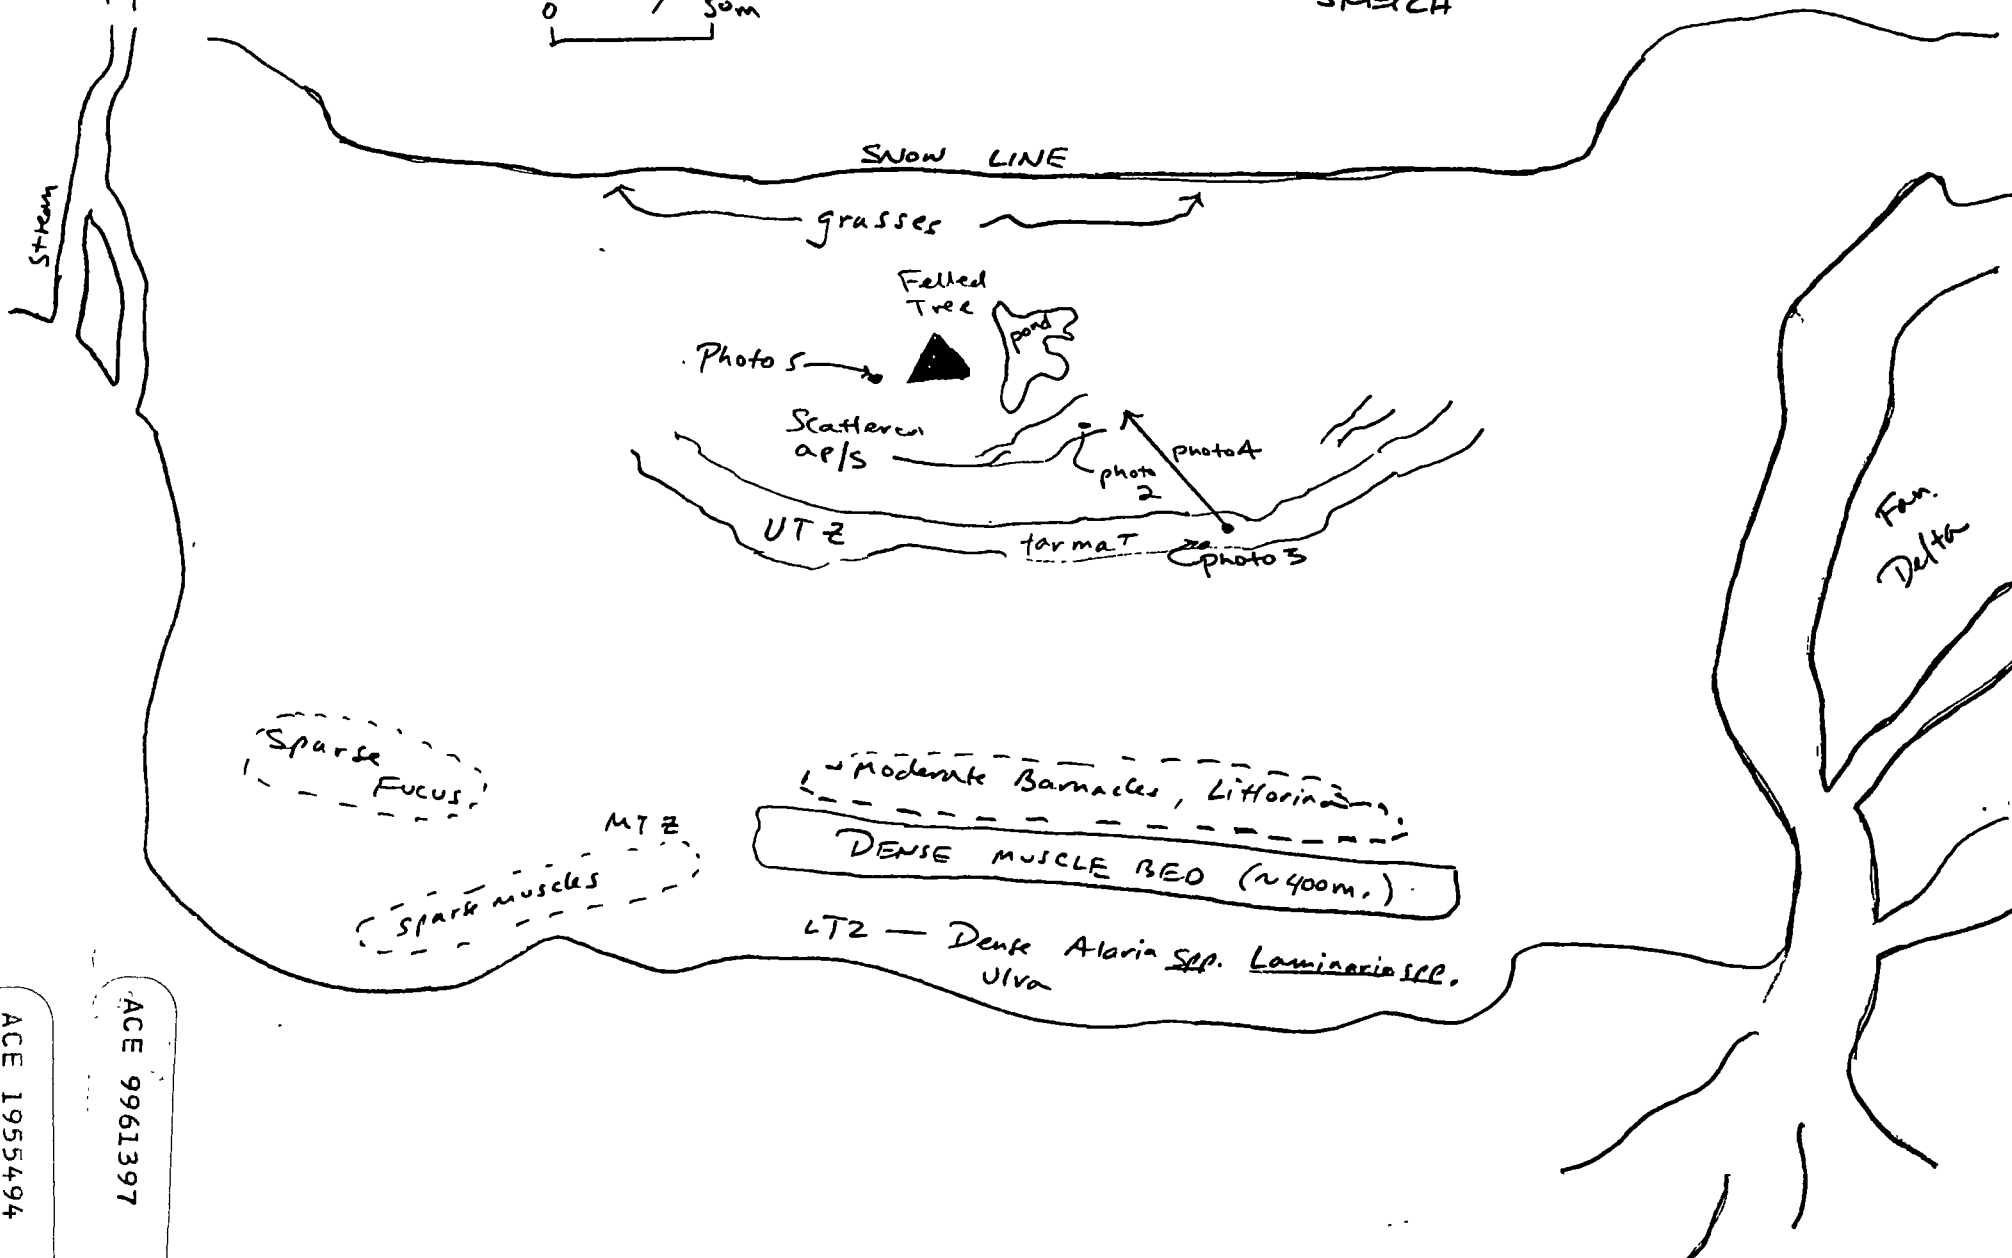 0 50m
SKETCH
SNOW LINE
Stream
grasses
Felled
Tree
pond
Photo 5
Scattered
ap/s
photo 4
photo
2
UTZ
tarmat
photo 3
Fan
Delta
Sparse
Fucus
Moderate Barnacles, Littorina
MTZ
DENSE MUSCLE BED (~400m.)
Sparse muscles
LTZ — Dense Alaria spp. Laminaria spp.
Ulva
ACE 9961397
ACE 1955494